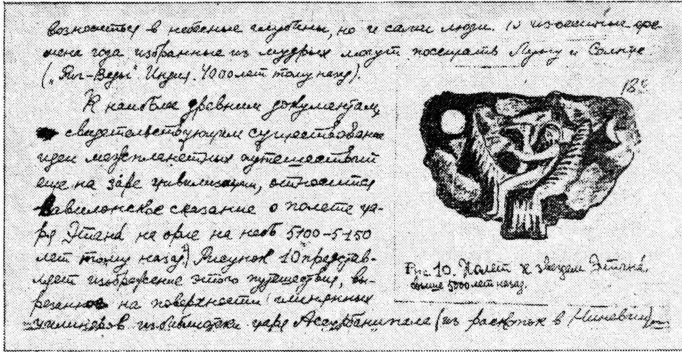 возноситься в небесные глубины, но и сами люди. В известные вре-
мена года избранные из мудрых могут посещать Луну и Солнце
("Риг-Веды" Индия. 4000 лет тому назад).
К наиболее древним документам,
свидетельствующим существование
идеи межпланетных путешествий
еще на заре цивилизации, относится
Вавилонское сказание о полете ца-
ря Этана на орле на небо 5100–5150
лет тому назад. Рисунок 10 представ-
ляет изображение этого путешествия, вы-
резанное на поверхности глиняных
цилиндров из библиотеки царя Ассурбанипала (из раскопок в Ниневии).
Рис. 10. Полет к звездам Этана,
свыше 5000 лет назад.